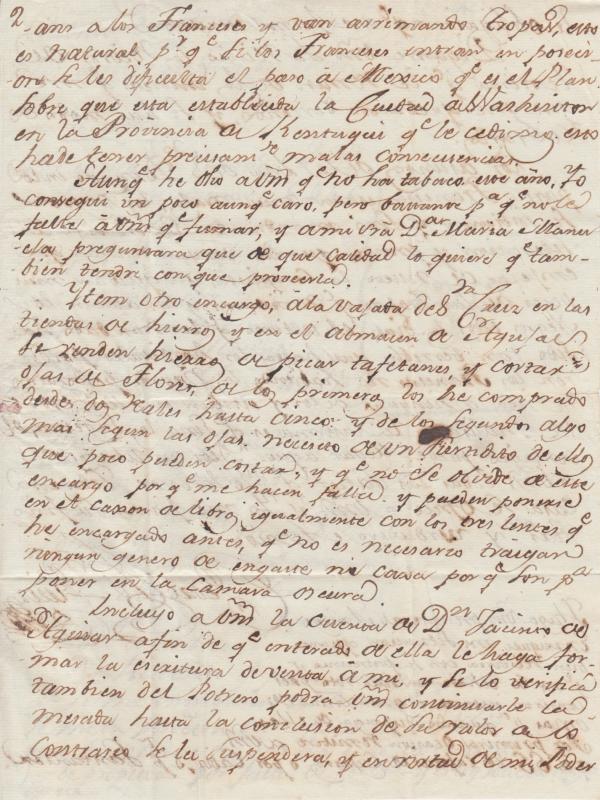 2
-ans a los Franceses y van arrimando tropas, esto
es natural pr. qe. si los Franceses entran en posecion
se les dificulta el paso à Mexico qe. es el Plan
sobre que esta establecida la Ciudad de Washinton
en la Provincia de Kentuqui qe. le cedimos. esto
ha de tener precisamte. malas consecuencias.
Aunqe. he dho a Vm qe. no ha tabaco este año, Yo
consegui un poco aunqe. caro, pero bastante pa. qe. no le
falte à Vm qe. fumar, y a mi Da. Maria Manu
ela preguntara que de que calidad lo quiere qe. tam-
-bien tendre con que proveerla.
Ytem otro encargo, à la vajada de Sta. Cruz en las
tiendas de hierro, y en el almacen de
se venden hierros de picar tafetanes, y cortar
ojas de Flores, de los primeros los he comprado
desde dos reales hasta cinco: y de los segundos algo
mas segun las ojas. necesito de un surtidito de ellos
que poco pueden costar, y qe. no se olvide de este
encargo porqe. me hacen falta y pueden ponerse
en el caxon de libros igualmente con los tres lentes qe.
he encargado antes, qe. no es necesario traigan
ningun genero de engaste ni caxa porqe. son pa.
poner en la Camara oscura
Incluyo a Vm la cuenta de Dn. Jacinto de
Aguiar a fin de qe. enterado de ella le haga for-
mar la escritura de venta à mi, y si lo verifica
tambien del Potrero podra Vm continuarle la
mesada hasta la conclusion de su valor a lo
Contrario se la suspendera, y en virtud de mi Poder